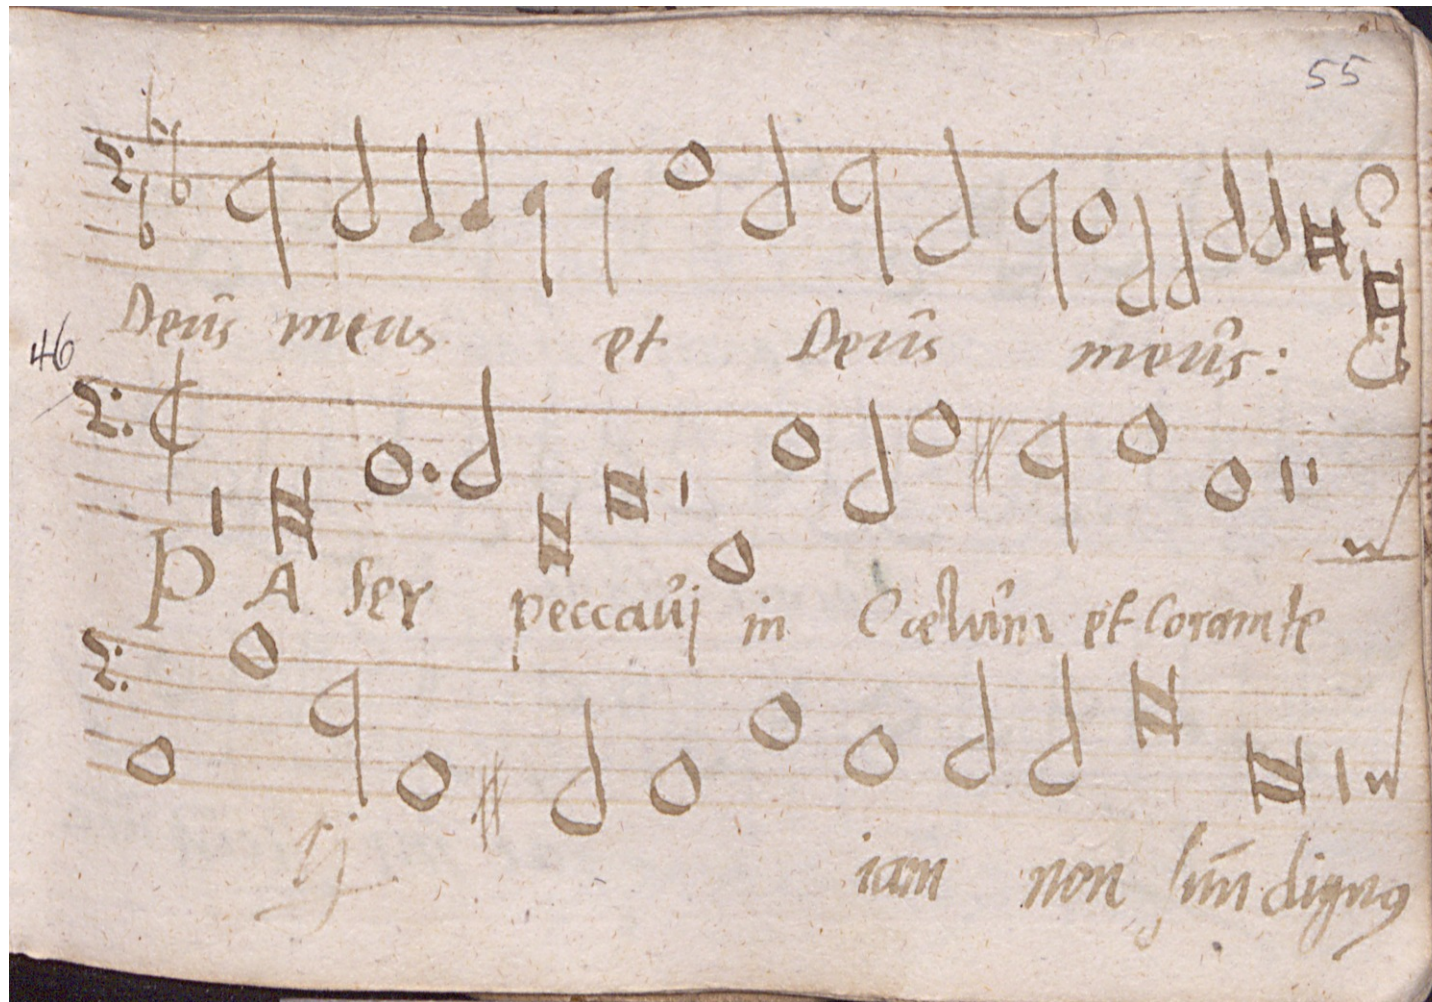 55
Deũs meus et Deũs meũs:
46
PAter peccaũj in Cœlũm et Coram te
ij iam non sũm dignus